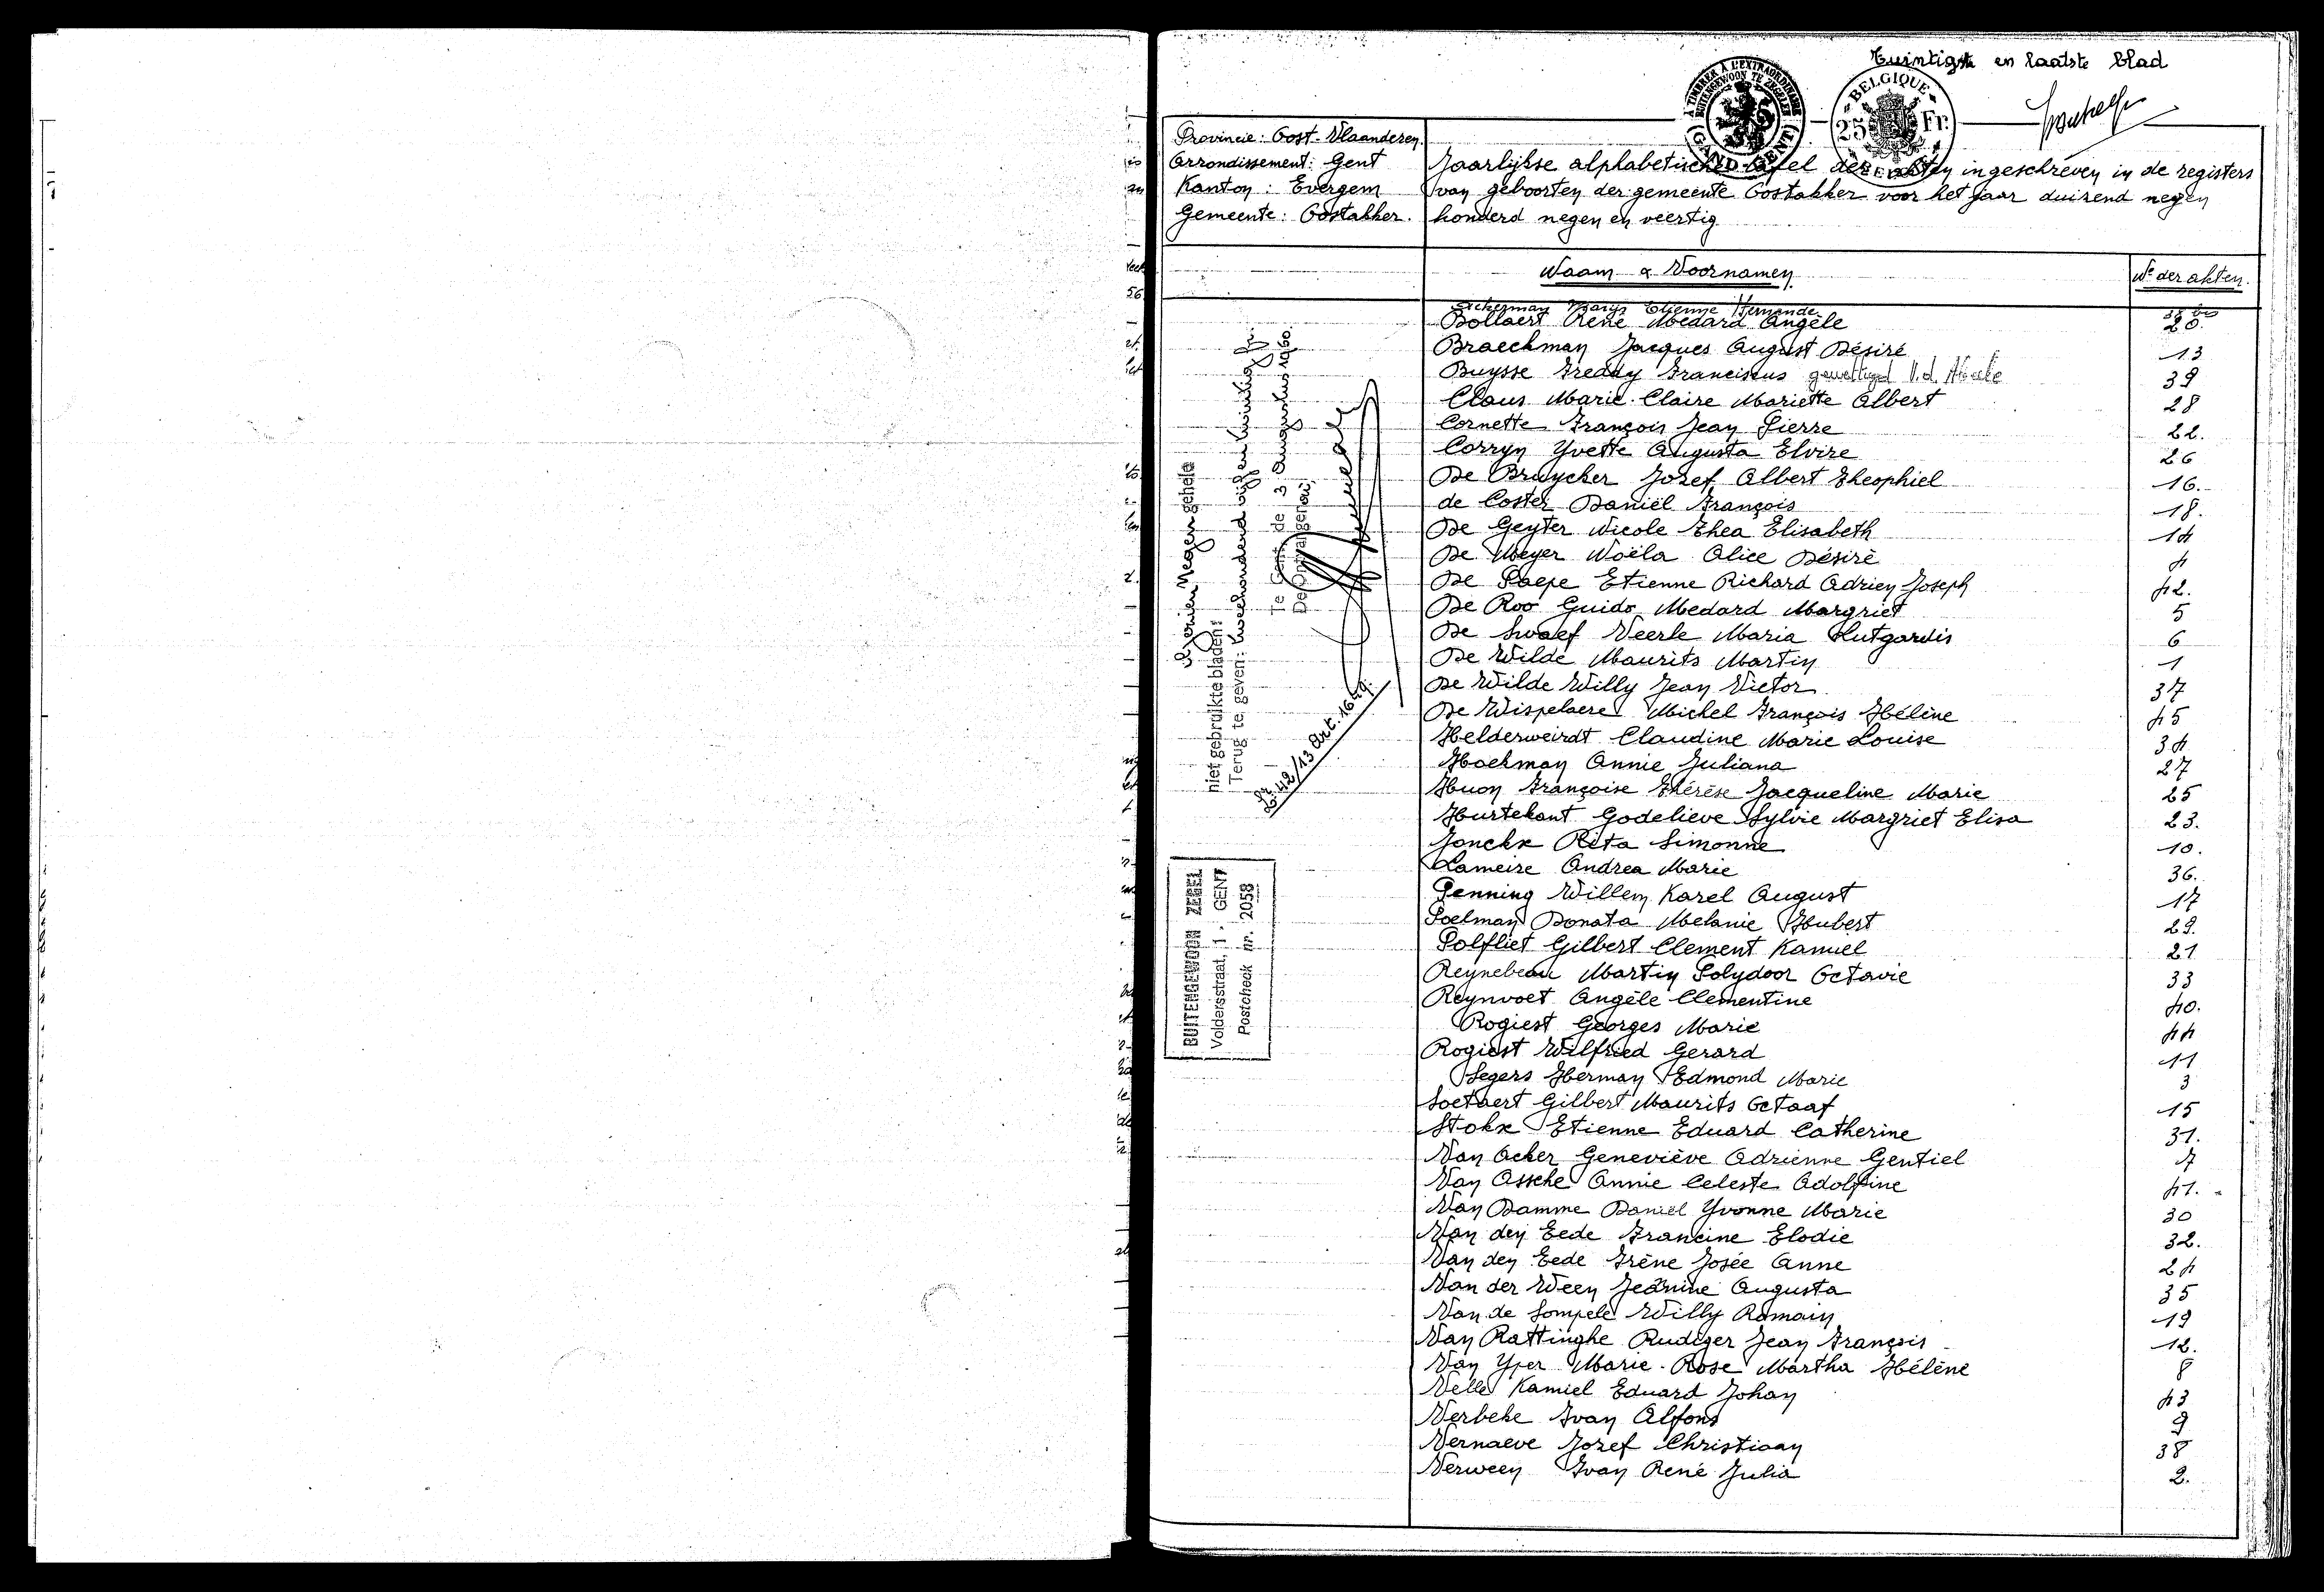 Twintigste en laatste blad
A TIMBRER À L'EXTRAORDINAIRE
BUITENGEWOON TE ZEGELEN
GAND - GENT
BELGIQUE
25 Fr.
BELGIË
Provincie: Oost-Vlaanderen.
Arrondissement: Gent
Kanton: Evergem
Gemeente: Oostakker.
Jaarlijkse alphabetische tafel der akten ingeschreven in de registers
van geboorten der gemeente Oostakker voor het jaar duizend negen
honderd negen en veertig
Naam & Voornamen
Nr der akten.
Etienne Fernande 38 bis
Bollaert René Medard Angèle 20.
Braeckman Jacques August Désiré 13
Buysse Freddy Franciscus gewettigd 39
Claus Marie-Claire Mariette Albert 28
Cornette François Jean Pierre 22.
Corryn Yvette Augusta Elvire 26
De Bruycker Jozef Albert Theophiel 16.
de Coster Daniël François 18.
De Geyter Nicole Thea Elisabeth 14
De Meyer Noëla Alice Désiré 4
De Paepe Etienne Richard Adrien Joseph 42.
De Roo Guido Medard Margriet 5
De Swaef Veerle Maria Lutgardis 6
De Wilde Maurits Martin 1
De Wilde Willy Jean Victor 37
De Wispelaere Michel François Hélène 45
Helderweirdt Claudine Marie Louise 34
Hoekman Annie Juliana 27
Huon Françoise Thérèse Jacqueline Marie 25
Hurtekant Godelieve Sylvie Margriet Elisa 23.
Jonckx Rita Simonne 10.
Lameire Andrea Marie 36.
Penning Willem Karel August 17
Poelman Donata Melanie Hubert 29.
Polfliet Gilbert Clement Kamiel 21
Reynebeau Martin Polydoor Octavie 33
Reynvoet Angèle Clementine 40.
Rogiest Georges Marie 44
Rogiest Wilfried Gerard 11
Segers Herman Edmond Marie 3
Soetaert Gilbert Maurits Octaaf 15
Stokx Etienne Eduard Catherine 31.
Van Acker Geneviève Adrienne Gentiel 7
Van Assche Annie Celeste Adolfine 41.
Van Damme Daniël Yvonne Marie 30
Van den Eede Francine Elodie 32.
Van den Eede Irène Josée Anne 24
Van der Veen Jeannine Augusta 35
Van de Sompele Willy Romain 19
Van Rattinghe Rudiger Jean François 12.
Van Yper Marie-Rose Martha Hélène 8
Velle Kamiel Eduard Johan 43
Verbeke Ivan Alfons 9
Vernaeve Jozef Christiaan 38
Verween Ivan René Julia 2.
negen gehele
niet gebruikte bladen:
Terug te geven:
Te Gent, de 3 1960
De Ontvanger
B. 42/13 Art. 1649.
BUITENGEWOON ZEGEL
Volderssstraat, 1. GENT
Postcheck nr. 2058